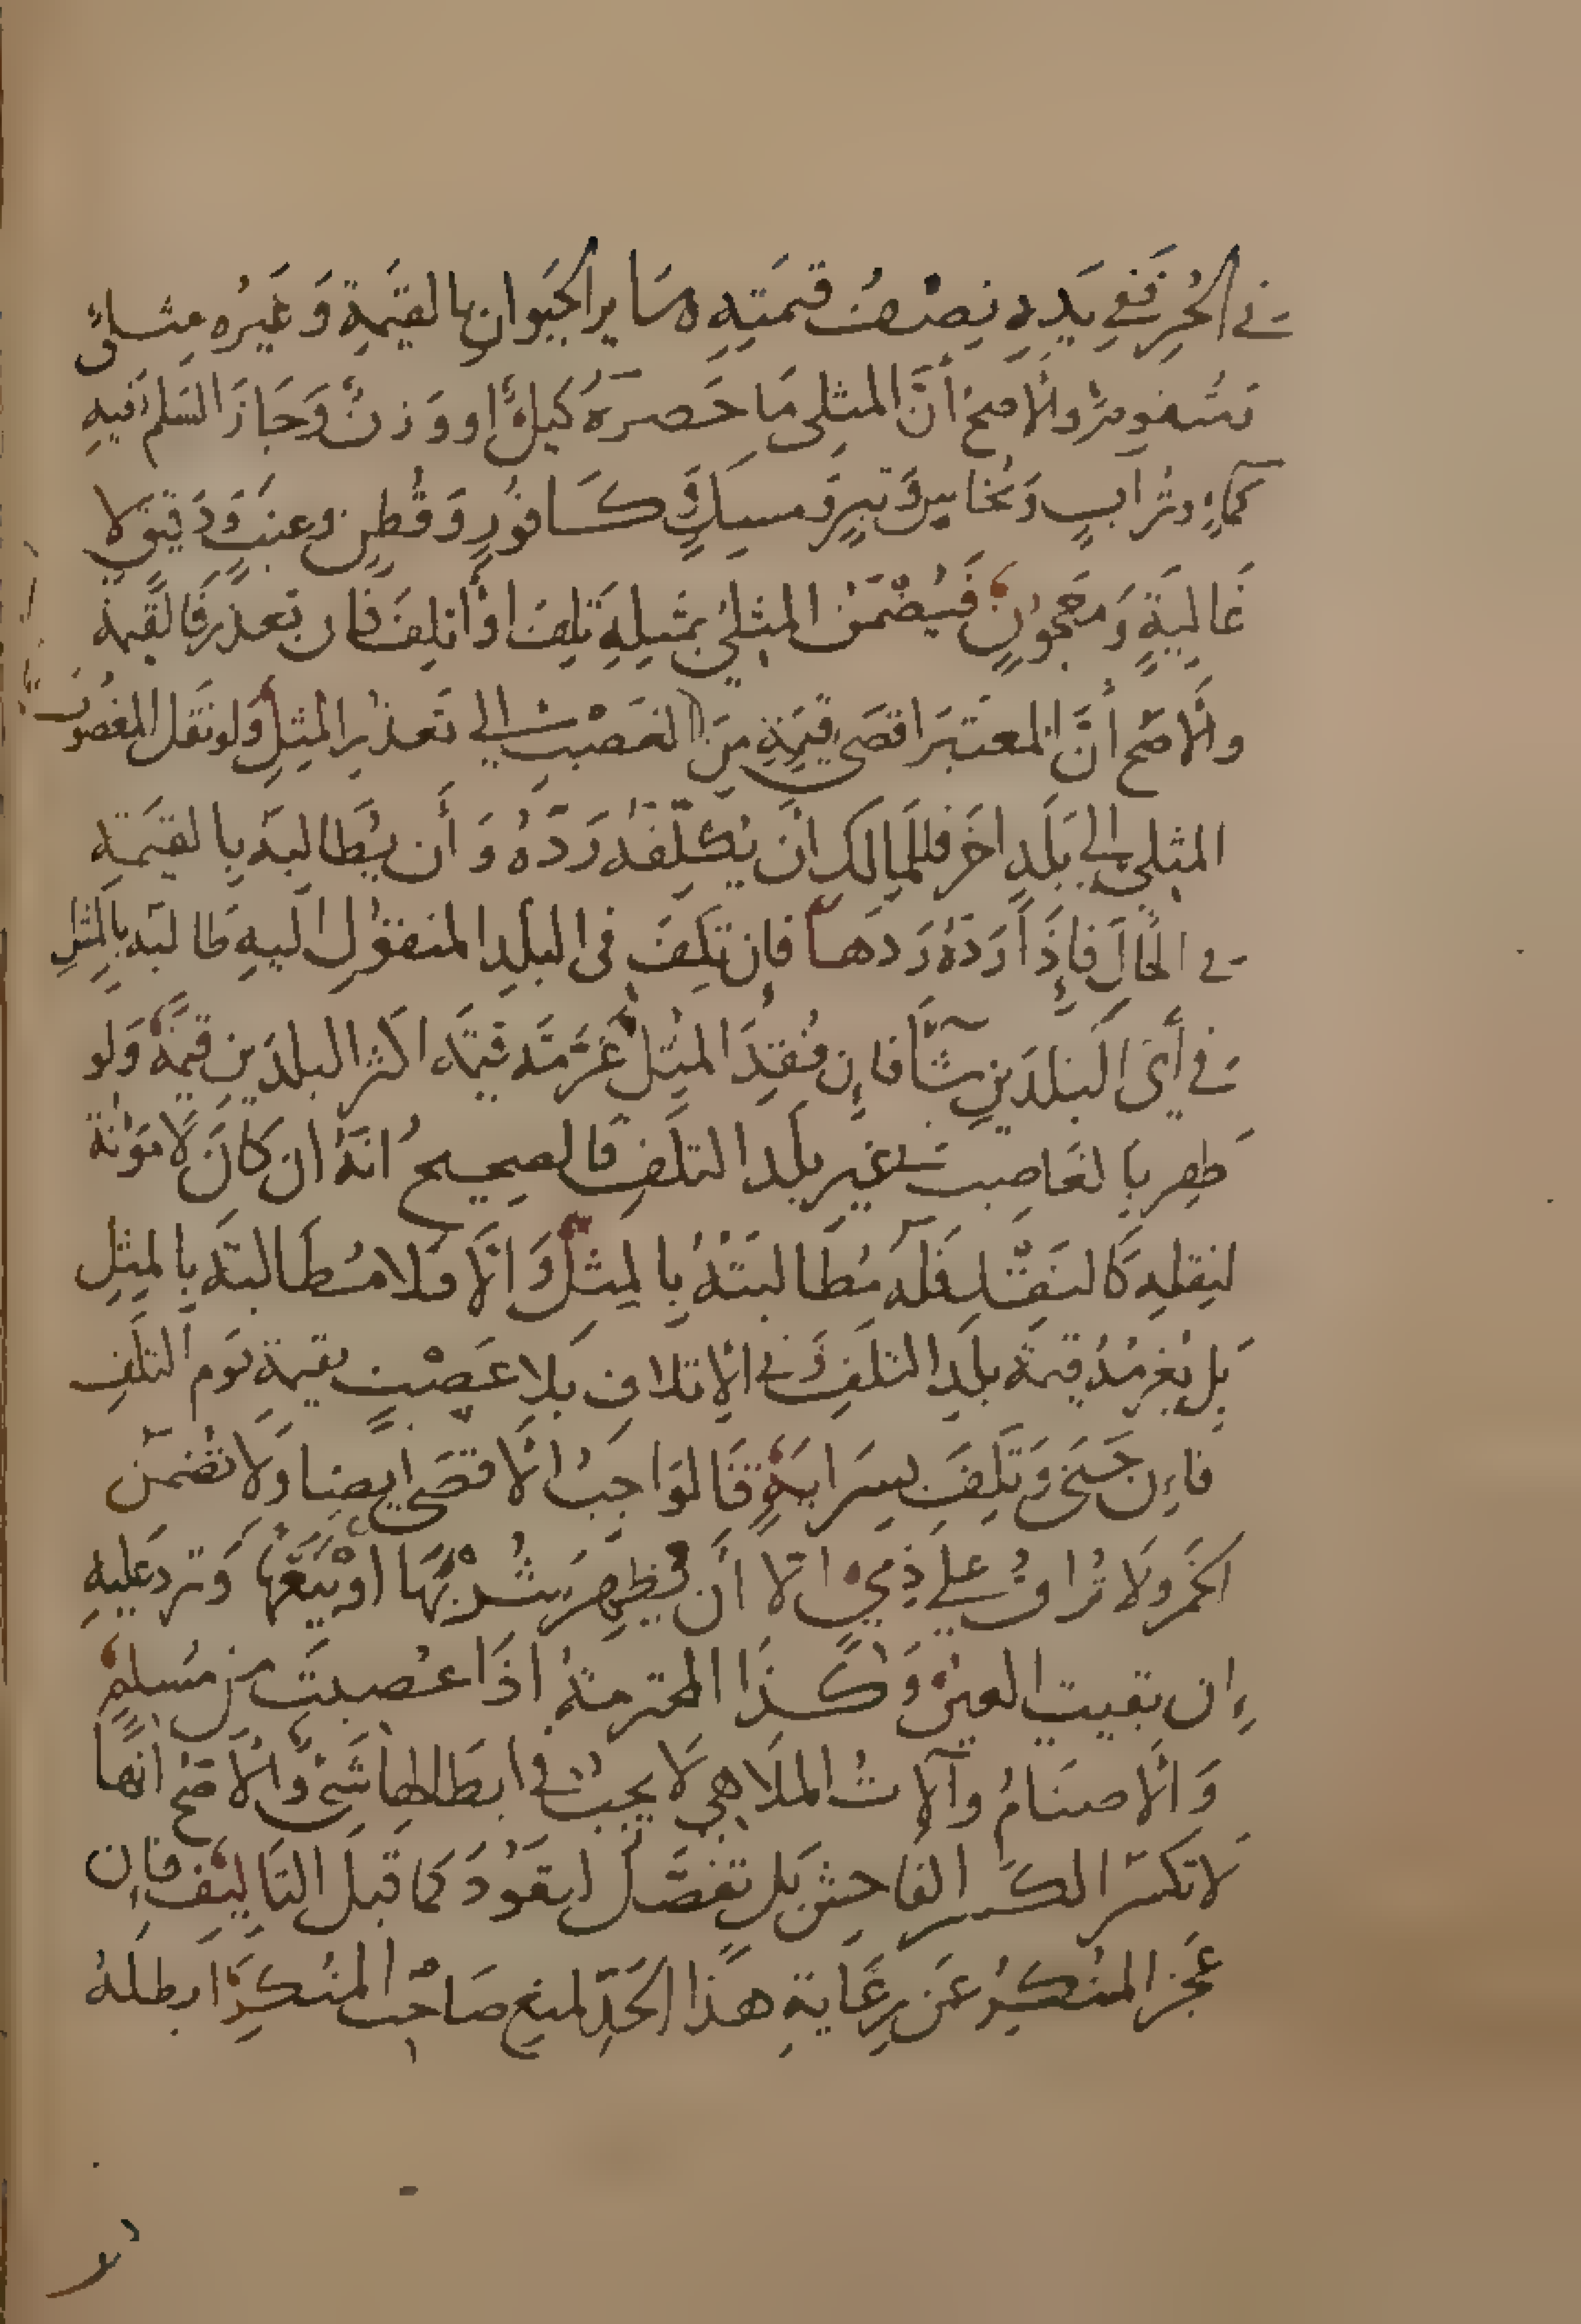 في الحُرِّ فَفِي يَدِهِ نِصْفُ قِيمَتِهِ وسَايرُ الحَيَوانِ بالقيمَةِ وَغَيرُه مِثليٌّ
ومُتَقومٌ والأَصَحُّ أَنَّ المثلي مَا حَصَرَهُ كَيلٌ او وَزنٌ وَجَازَ السَّلم فيهِ
كَمَاءٍ وتُرابٍ وَنُحَاسٍ وَتِبرٍ وَمسكٍ وَكَافُورٍ وَقُطنٍ وعِنَبٍ وَدَقيقٍ لا
غَاليَةٍ وَمَعجُونٍ فَيُضْمَنُ المثليُّ بمثلِهِ تَلِفَ اوْ أُتلِفَ فان تعذر فَالقيمة
والأَصَح أَنَّ المعتَبَرَ اقصَى قِيَمَةٍ مِنَ الغَصْبِ الي تَعَذُّرِ المِثلِ وَلو نَقَلَ المَغصُوبَ
المثلي الي بَلَدٍ اخَرَ فللمَالِك أَن يُكَلِّفَهُ رَدَّهُ وَأَن يُطَالبَهُ بِالقيمَةِ
في الحَالِ فَإذَا رَدَّهُ رَدَهَا فإن تَلِفَ فى البلَدِ المنقُولِ اليهِ طَالبَه بالمثلِ
في أَيِّ البَلَدَينِ شَآ فَإن فُقِدَ المِثلُ غَرَّمَه قيمَة اكثر البلدَينِ قيمَةً وَلَو
ظفِر بالغَاصِبِ في غيرِ بَلَدِ التلَفِ فَالصحِيحُ انَهُ ان كَانَ لَا مَؤُنَةَ
لنقلِهِ كَالنَقْدِ فَلَه مُطَالبَتُهُ بِالمِثلِ وَاِلَّا فَلا مُطَالبَة بِالمِثلِ
بَل يُغرمُهُ قِيمَة بلَدِ التلَفِ وَفي الإتلافِ بَلا غَصْبٍ بقيمة يَوم التلَفِ
فَإن جَنَى وَتَلِفَ بسِرَايَةٍ فَالوَاجِبُ الأَقصَى ايضا وَلَا تضمَن
الخَمر ولَا تُرَاقُ علي ذِميٍ إلّا أَن يُظهِرَ شُرْبَها اوْ بَيْعَهَا وَتردّ عليهِ
إن بقيت العينُ وَكَذَا المحترمَةُ اذَا غُصِبَتْ مِن مُسلِمٍ
وَالأَصنَامُ وآلاتُ المَلَاهِي لَا يَجِبُ في ابطَالِهَا شَيءٌ وَالأَصَحّ انهَا
لَا تكسَّر الكَسرَ الفَاحِشَ بَل تفَصَّلُ لتَعُودَ كَمَا قَبلَ التَاليفِ فإن
عَجَزَ المُنكِرُ عَن رِعَايَةِ هَذَا الحَدِّ لمنعِ صَاحِب المُنكَرِ ابطلهُ